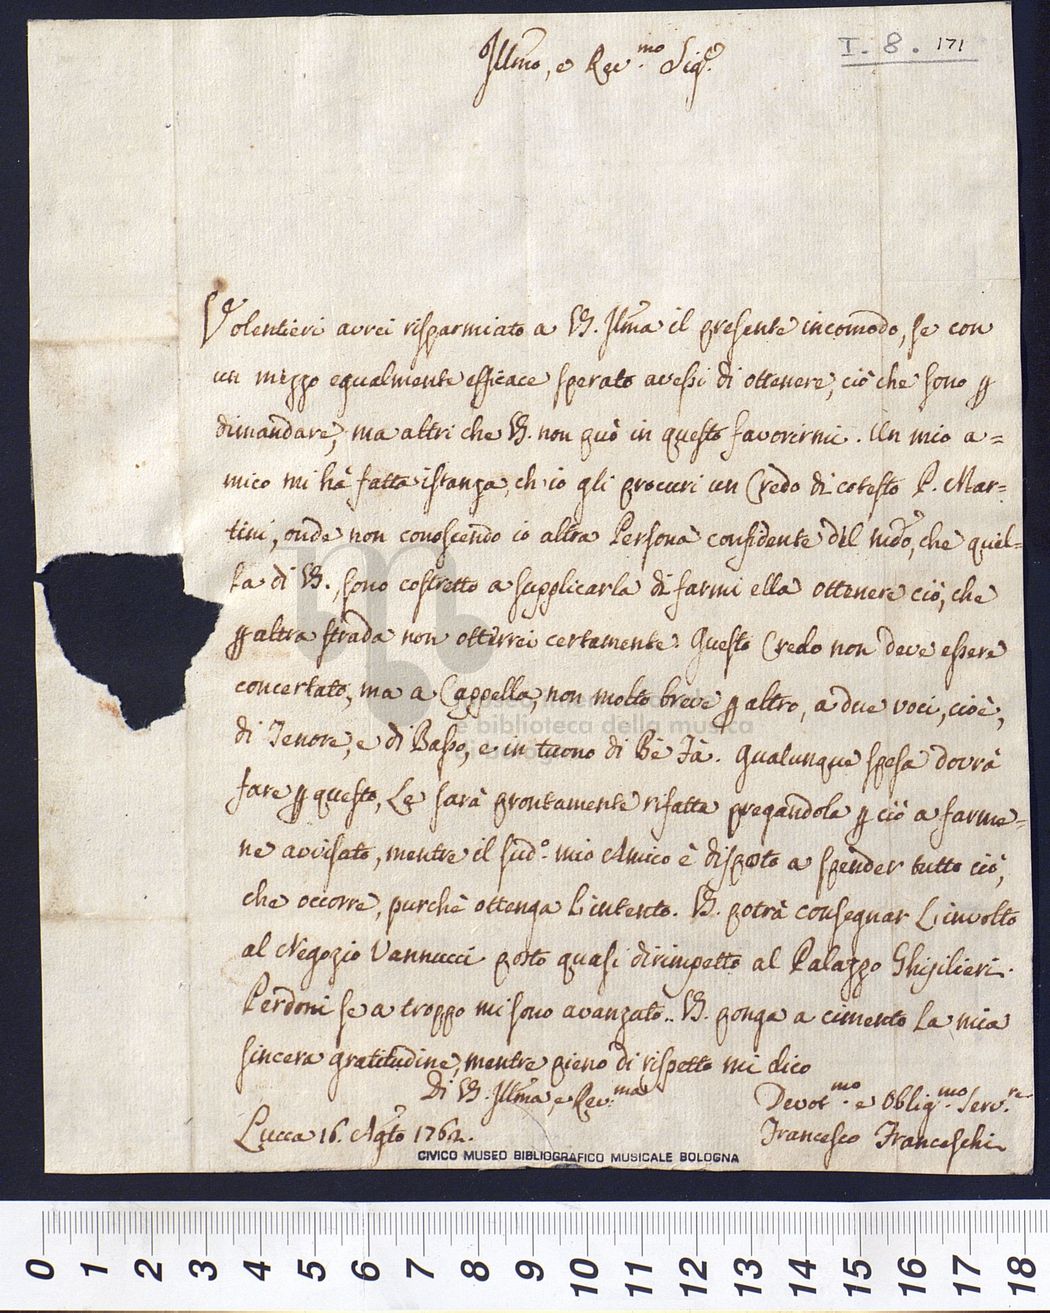 I. 8. 171
Illmo, e Rev.mo Sigre
Volentieri avrei risparmiato a VS. Illma il presente incomodo, se con
un mezzo egualmente efficace sperato avessi di ottenere, ciò che sono p
dimandare, ma altri che VS. non può in questo favorirmi. Un mio a=
mico mi hà fatta istanza, ch'io gli procuri un Credo di cotesto P. Mar=
tini, onde non conoscendo io altra Persona confidente del mdo, che quel=
la di VS., sono costretto a supplicarla di farmi ella ottenere ciò, che
p altra strada non otterrei certamente. Questo Credo non deve essere
concertato, ma a Cappella, non molto breve p altro, a due voci, cioè,
di Tenore, e di Basso, e in tuono di Bè Fà. Qualunque spesa dovrà
fare p questo, Le sarà prontamente rifatta pregandola p ciò a farme=
ne avvisato, mentre il sudo. mio Amico è disposto a spender tutto ciò,
che occorre, purchè ottenga L'intento. VS. potrà consegnar L'involto
al Negozio Vannucci posto quasi dirimpetto al Palazzo Ghisilieri.
Perdoni se a troppo mi sono avanzato.. VS. ponga a cimento la mia
sincera gratitudine, mentre pieno di rispetto mi dico
Di VS. Illma, e Rev.ma
Devot.mo e Oblig.mo Serv.re
Lucca 16. Agto 1762.
Francesco Franceschi
CIVICO MUSEO BIBLIOGRAFICO MUSICALE BOLOGNA
museo internazionale
e biblioteca della musica
di bologna
0 1 2 3 4 5 6 7 8 9 10 11 12 13 14 15 16 17 18